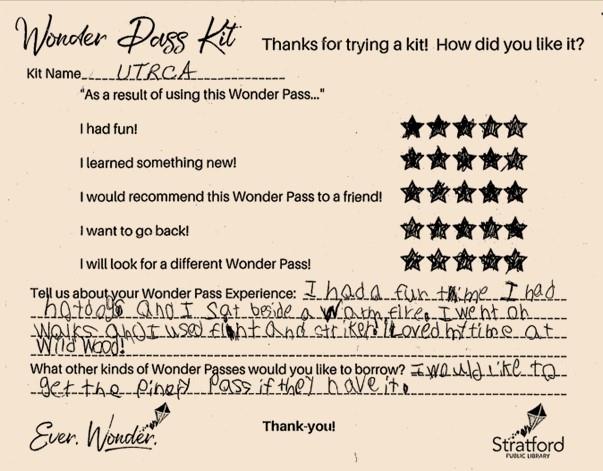 Wonder Pass Kit
Thanks for trying a kit! How did you like it?
Kit Name UTRCA
"As a result of using this Wonder Pass..."
I had fun!
I learned something new!
I would recommend this Wonder Pass to a friend!
I want to go back!
I will look for a different Wonder Pass!
Tell us about your Wonder Pass Experience: I had a fun time I had
hotdogs and I sat beside a warm fire. I went on
walks and I used flint and striker. I loved my time at
Wildwood!
What other kinds of Wonder Passes would you like to borrow? I would like to
get the pinery pass if they have it.
Thank-you!
Ever. Wonder.
Stratford
PUBLIC LIBRARY